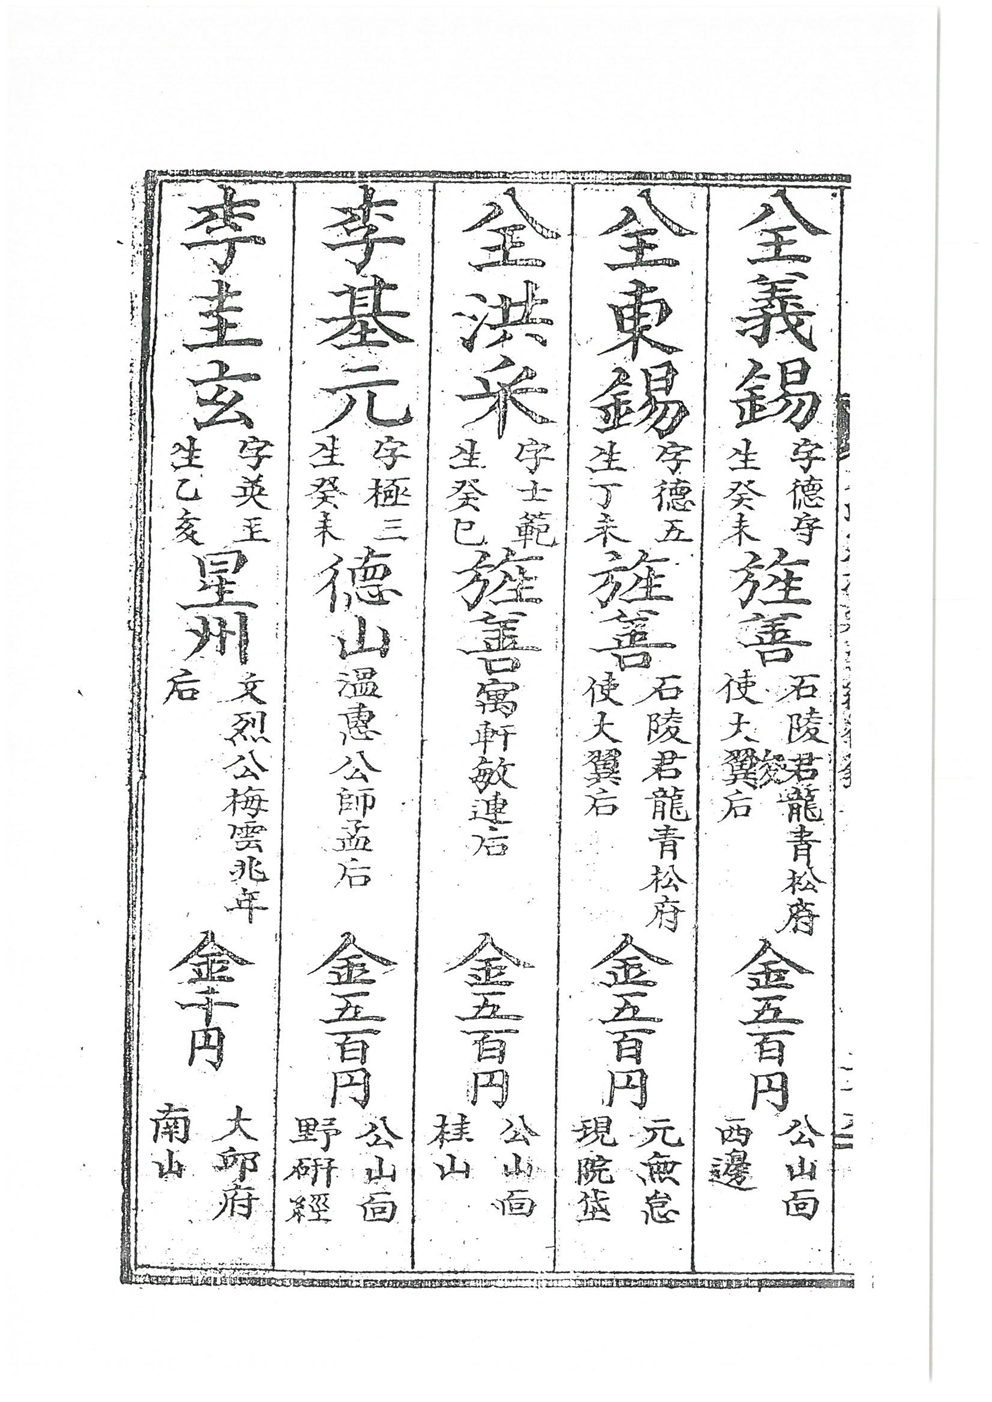 全義錫
字德守
生癸未
旌善
石陵君龍青松府
使大翼后
金五百円
公山面
西邊
全東錫
字德五
生丁未
旌善
石陵君龍青松府
使大翼后
金五百円
元無怠
現院垈
全洪采
字士範
生癸巳
旌善
寓軒敏連后
金五百円
公山面
桂山
李基元
字極三
生癸未
德山
溫惠公師孟后
金五百円
公山面
野硏經
李圭玄
字英玉
生乙亥
星州
文烈公梅雲兆年
后
金千円
大邱府
南山